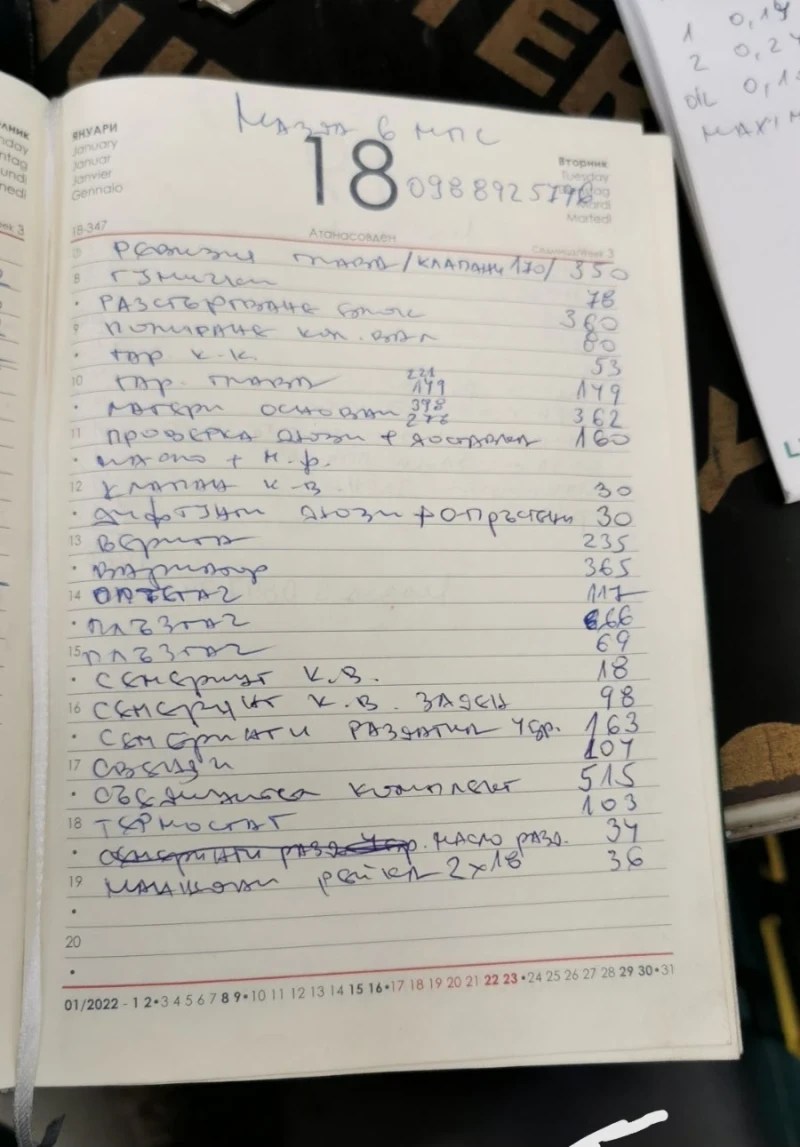 1 0,19
2 0,24
OK 0,1
MAXIM
Мазда 6 МПС
ЯНУАРИ
January
Januar
Janvier
Gennaio
18
0988925
Вторник
Tuesday
Mardi
Martedì
18-347
Атанасовден
Седмица/Week 3
РЕВИЗИЯ ГЛАВА /КЛАПАНИ 170/ 350
8 ГУМИЧКИ 78
РАЗСТЪРГВАНЕ БЛОК 360
9 ПОЛИРАНЕ КОЛ. ВАЛ 60
ГАР. К.К. 53
221
10 ГАР. ГЛАВА 149 149
ЛАГЕРИ ОСНОВНИ 398 362
276
11 ПРОВЕРКА ДЮЗИ + ДОСТАВКА 160
МАСЛО + М.Ф.
12 КЛАПАН К.В. 30
ДИФТУНИ ДЮЗИ + О ПРЪСТЕНИ 30
13 ВЕРИГА 235
ВАРИАТОР 365
14 ОБТЕГАЧ 117
ПЛЪЗГАЧ 66
15 ПЛЪЗГАЧ 69
СЕМЕРИНГ К.В. 18
16 СЕМЕРИНГ К.В. ЗАДЕН 98
СЕМЕРИНГИ РАЗДАТКА 4бр. 163
17 СВЕЩИ 107
СЪЕДИНИТЕЛ КОМПЛЕКТ 515
18 ТЕРМОСТАТ 103
СЕМЕРИНГИ РАЗД 4бр. МАСЛО РАЗД. 34
19 НАКЛАДКИ РЕЙКА 2x18 36
20
01/2022 - 1 2•3 4 5 6 7 8 9•10 11 12 13 14 15 16•17 18 19 20 21 22 23•24 25 26 27 28 29 30•31